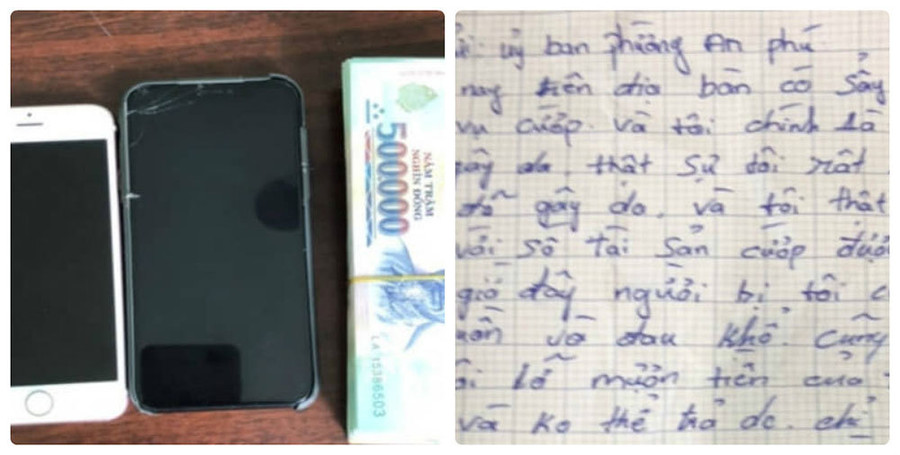 NĂM TRĂM
NGHÌN ĐỒNG
500000
LA 15386503
ủy ban phường An phú
nay trên địa bàn có
vụ cướp. và tôi chính là
gây da. thật sự tôi rất
gây do. và tôi thật
với số tài sản cướp
giờ đây người bị tôi
và đau khổ. cũng
lỡ mượn tiền của
và ko thể trả dc. chỉ